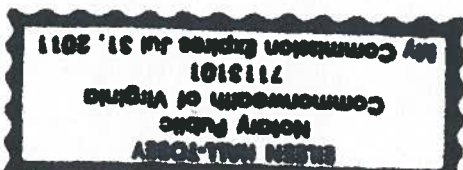 EILEEN HALL-TOSEY
Notary Public
Commonwealth of Virginia
7113101
My Commission Expires Jul 31, 2011